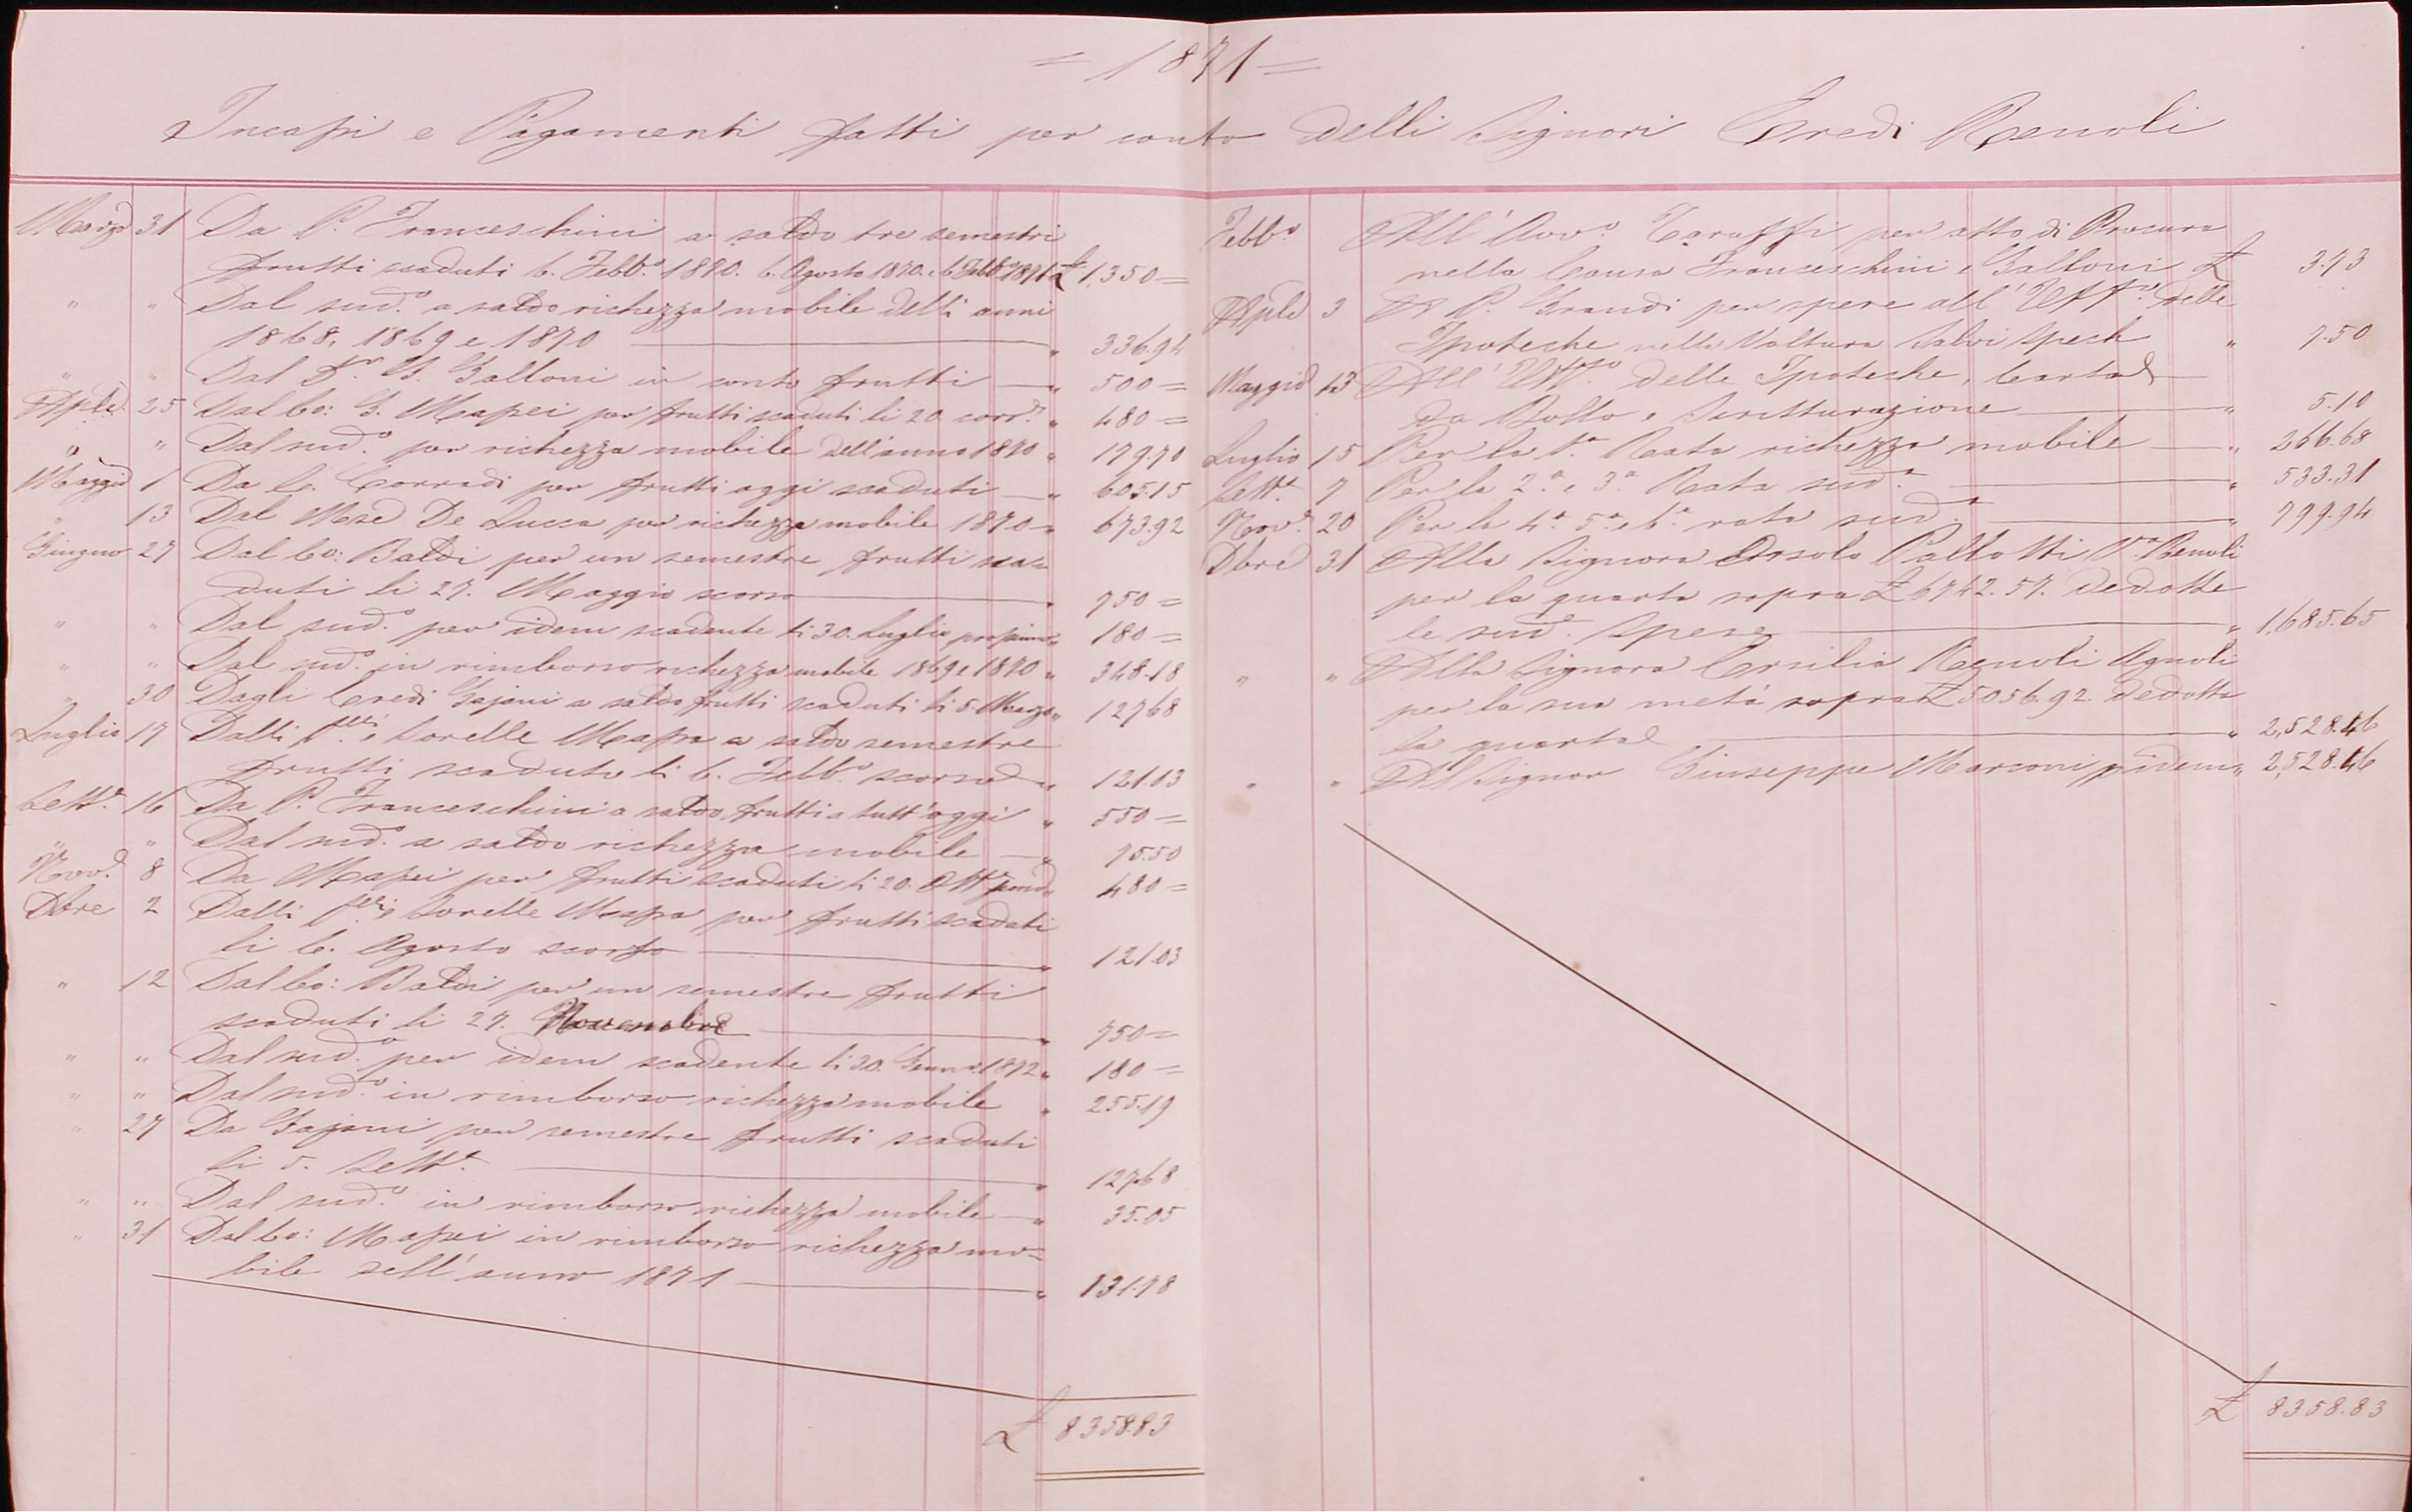 = 1871 =
Incassi e Pagamenti fatti per conto delli Signori Eredi Renoli
Marzo 31 Da P. Franceschini a saldo tre semestri
frutti scaduti 6. Febb.o 1870. 6. Agosto 1870. e 6 Febb.o 1871 £ 1,350 =
" " Dal sud.o a saldo richezza mobile delli anni
1868, 1869 e 1870 " 336.94
" " Dal D.r G. Galloni in conto frutti " 500 =
Aple 25 Dal Co: G. Massei per frutti scaduti li 20 corr.e " 480 =
" " Dal sud.o per richezza mobile dell'anno 1870 " 179.70
Maggio 1 Da C. Corradi per frutti oggi scaduti " 605.15
" 13 Dal Mse De Lucca per richezza mobile 1870 " 673.92
Giugno 27 Dal Co: Baldi per un semestre frutti sca=
duti li 27. Maggio scorso " 750 =
" " Dal sud.o per idem scadente li 30. Luglio prossimo " 180 =
" " Dal sud.o in rimborso richezza mobile 1869 e 1870 " 348.18
" 30 Dagli Eredi Gajani a saldo frutti scaduti li 5. Marzo " 127.68
Luglio 17 Dalli F.lli e Sorelle Massa a saldo semestre
frutti scaduto li 6. Febb.o scorso " 121.03
Sett.e 16 Da P. Franceschini a saldo frutti a tutt'oggi " 550 =
" " Dal sud.o a saldo richezza mobile " 75.50
Nov.e 8 Da Massei per frutti scaduti li 20. Ott.e " 480 =
Dbre 2 Dalli F.lli e Sorelle Massa per frutti scaduti
li 6. Agosto scorso " 121.03
" 12 Dal Co: Baldi per un semestre frutti
scaduti li 27. Novembre " 750 =
" " Dal sud.o per idem scadente li 30. Genn.o 1872 " 180 =
" " Dal sud.o in rimborso richezza mobile " 255.19
" 27 Da Gajani per semestre frutti scaduti
li 5. Sett.e " 127.68
" " Dal sud.o in rimborso richezza mobile " 35.05
" 31 Dal Co: Massei in rimborso richezza mo=
bile dell'anno 1871 " 131.78
£ 8358.83
Febb.o All'Avv.o Taruffi per atto di Procura
nella Causa Franceschini e Galloni £ 3.73
Aple 3 A P. Grandi per spese all'Uff.o delle
Ipoteche nella Voltura Salvi Spech " 7.50
Maggio 13 All'Uff.o delle Ipoteche, Carta
da Bollo e Scritturazione " 5.10
Luglio 15 Per la 1.a Rata richezza mobile " 266.68
Sett.e 7 Per la 2.a e 3.a Rata sud.a " 533.31
Nov.e 20 Per la 4.a 5.a e 6.a rata sud.a " 799.94
Dbre 31 Alla Signora Orsola Pallotti V.a Renoli
per la quarta sopra £ 6742.57. dedotte
le sud.e Spese " 1,685.65
" " Alla Signora Ersilia Renoli Agnoli
per la sua metà sopra £ 5056.92 dedotta
la quarta " 2,528.46
" " Al Signor Giuseppe Marconi p idem " 2,528.46
£ 8358.83